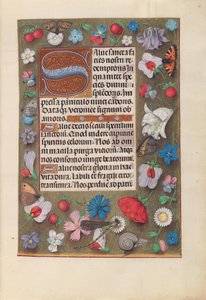 Salve sancta fa
cies nostri re
demptoris In
qua nitet spe
cies divini
splēdoris. Im
pressa pāniculo nivei cādoris.
Dataqȝ veronice signum ob
amoris.
Salve decus seculi speculum
sanctorū. Quod videre cupiunt
spiritus celorum. Nos ab om
ni macula purga viciorū. Atqȝ
nos consortio iunge beatorum.
Salve nostra gloria in hac
vita dura. Labili et fragili cito
transitura. Nos perduc ad patri